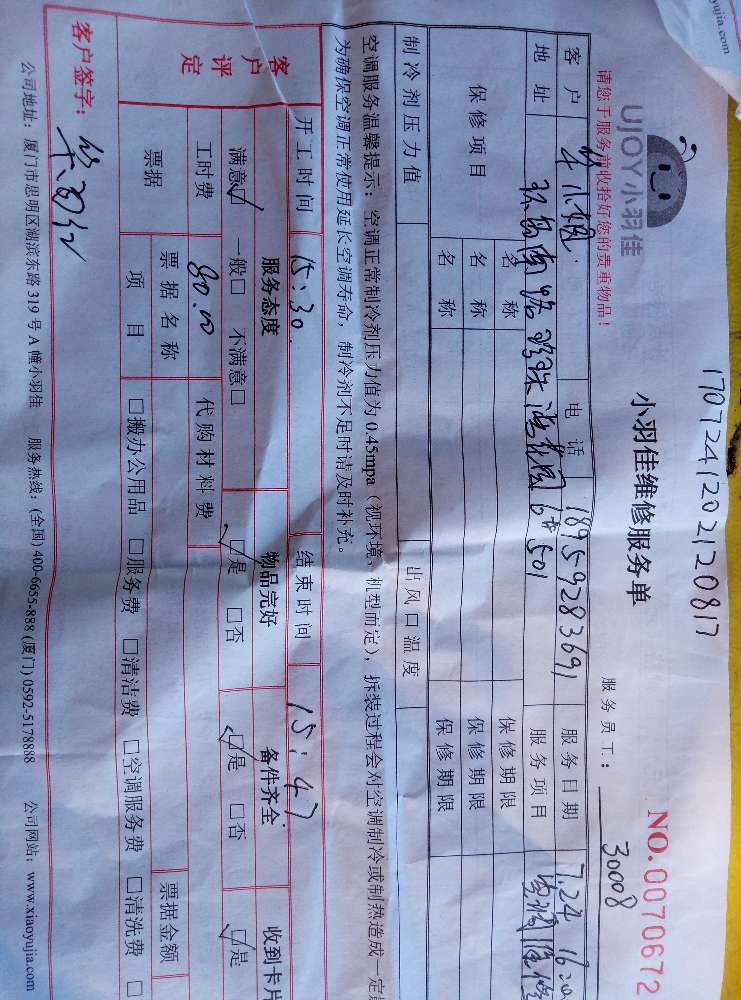 yujia.com
17072412021 20817
UJOY小羽佳
小羽佳维修服务单
NO.0070672
请您于服务前收拾好您的贵重物品!
服务员工: 30008
客户 小姐 电话 18959283691 服务日期 7.24 16:00
地址 环岛南路 珍珠湾花园6# 501 服务项目 空调维修
保修项目 名称 保修期限
名称 保修期限
名称 保修期限
制冷剂压力值 出风口温度
空调服务温馨提示: 空调正常制冷剂压力值为 0.45mpa (视环境、机型而定), 拆装过程会对空调制冷或制热造成一定
为确保空调正常使用延长空调寿命, 制冷剂不足时请及时补充。
开工时间 15:30. 结束时间 15:47
客户评定 服务态度 物品完好 备件齐全 收到卡片
满意☑ 一般□ 不满意□ ☑是 □否 ☑是 □否 ☑是
工时费 80.00 代购材料费
票据 票据名称 票据金额
项目 □搬办公用品 □服务费 □清洁费 □空调服务费 □清洗费 □
客户签字:
公司地址: 厦门市思明区湖滨东路 319 号 A 幢小羽佳 服务热线: (全国) 400-6655-888 (厦门) 0592-5178888 公司网站: www.xiaoyujia.com